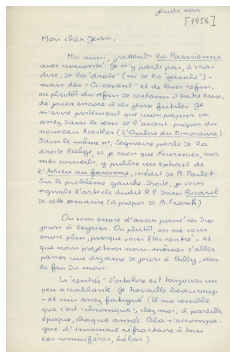 jeudi soir
[1956]
Mon cher Jean,
Moi aussi, j'attends La Parisienne
avec curiosité. Je n'y parle pas, à vrai
dire, de la "droite" (ni de la "gauche") -
mais des "Ci-devant" et de leur refus,
ou plutôt du refus de certains d'entre eux,
de jouer encore à ces jeux futiles. Je
m'avise justement que mon papier va
assez dans le sens de l'avant-propos du
nouveau Koestler (L'Ombre du Dinosaure).
Dans le même n°, Legnaire parle de la
droite belge, et je crois que
mes conseils, y publie un extrait de
l'Adieu au fascisme, inédit de R. Poulet
sur le problème gauche-droite. Je vous
signale l'article dudit R. P. dans Rivarol
de cette semaine (à propos de A. Frank)
On vous envie d'avoir passé ces dix
jours à Veyrier. Ou plutôt, on ne vous
envie plus, puisque vous êtes rentré. Et
que nous projetons nous-mêmes d'aller
passer une dizaine de jours à Cully, vers
la fin du mois.
La "rentrée" d'octobre est toujours un
peu accablante. Je travaille beaucoup
- et suis assez fatigué (il me semble
que c'est "chronique", chez moi, à pareille
époque, chaque année. Cela s'accompa-
gne d'insomnie réfractaire à tous
les somnifères, hélas.)